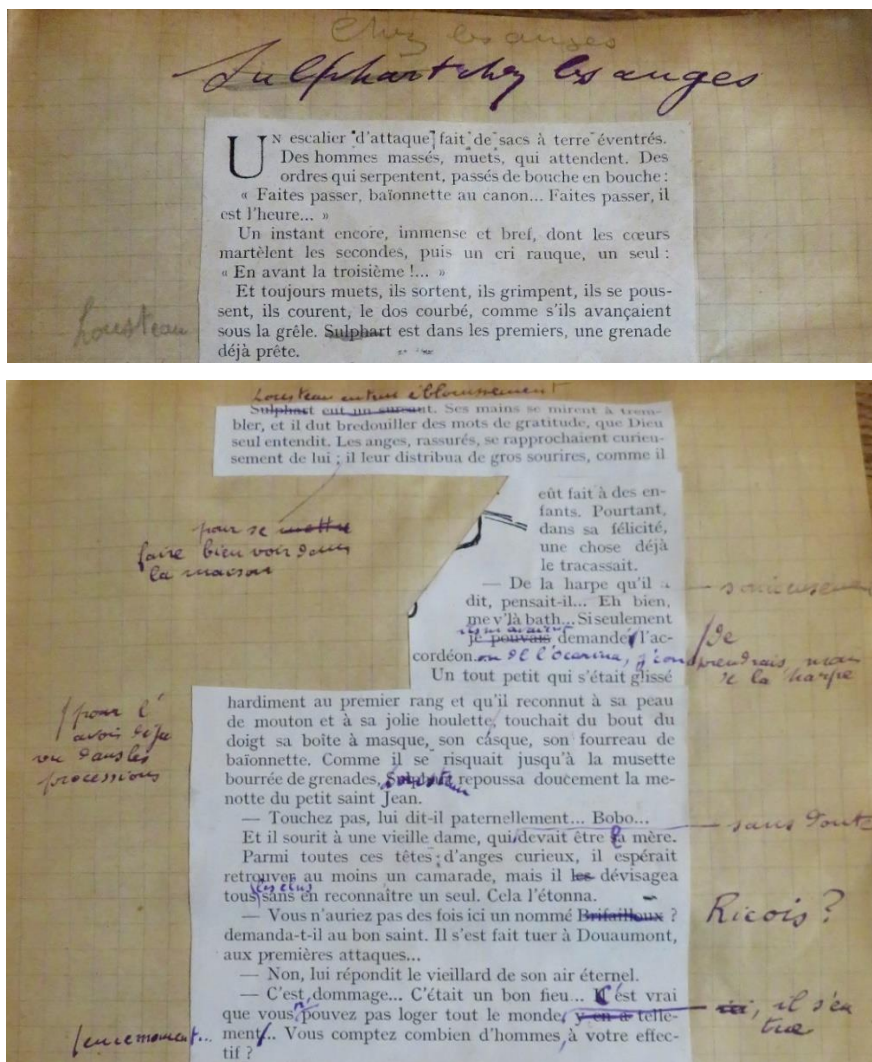 Chez les anges
Sulphart chez les anges
UN escalier d'attaque fait de sacs à terre éventrés.
Des hommes massés, muets, qui attendent. Des
ordres qui serpentent, passés de bouche en bouche :
« Faites passer, baïonnette au canon... Faites passer, il
est l'heure... »
Un instant encore, immense et bref, dont les cœurs
martèlent les secondes, puis un cri rauque, un seul :
« En avant la troisième !... »
Et toujours muets, ils sortent, ils grimpent, ils se pous-
sent, ils courent, le dos courbé, comme s'ils avançaient
Lousteau
sous la grêle. Sulphart est dans les premiers, une grenade
déjà prête.
Lousteau eut un éblouissement
Sulphart eut un sursaut. Ses mains se mirent à trem-
bler, et il dut bredouiller des mots de gratitude, que Dieu
seul entendit. Les anges, rassurés, se rapprochaient curieu-
sement de lui ; il leur distribua de gros sourires, comme il
pour se mettre
faire bien voir dans
la maison
eût fait à des en-
fants. Pourtant,
dans sa félicité,
une chose déjà
le tracassait.
— De la harpe qu'il a
dit, pensait-il... Eh bien,
me v'là bath... Si seulement
je pouvais demander l'ac-
de
cordéon ou de l'ocarina, j'comprendrais, mais
de la harpe
Un tout petit qui s'était glissé
hardiment au premier rang et qu'il reconnut à sa peau
de mouton et à sa jolie houlette, touchait du bout du
pour l'
avoir déjà
vu dans les
processions
doigt sa boîte à masque, son casque, son fourreau de
baïonnette. Comme il se risquait jusqu'à la musette
bourrée de grenades, Sulphart repoussa doucement la me-
Lousteau
notte du petit saint Jean.
— Touchez pas, lui dit-il paternellement... Bobo...
Et il sourit à une vieille dame, qui devait être sa mère.
sans doute
Parmi toutes ces têtes d'anges curieux, il espérait
retrouver au moins un camarade, mais il les dévisagea
les élus
tous sans en reconnaître un seul. Cela l'étonna.
— Vous n'auriez pas des fois ici un nommé Brifailloux ?
Ricois ?
demanda-t-il au bon saint. Il s'est fait tuer à Douaumont,
aux premières attaques...
— Non, lui répondit le vieillard de son air éternel.
— C'est dommage... C'était un bon fieu... C'est vrai
que vous pouvez pas loger tout le monde, y en a telle-
il s'en
tue
ment... Vous comptez combien d'hommes à votre effec-
en ce moment...
tif ?